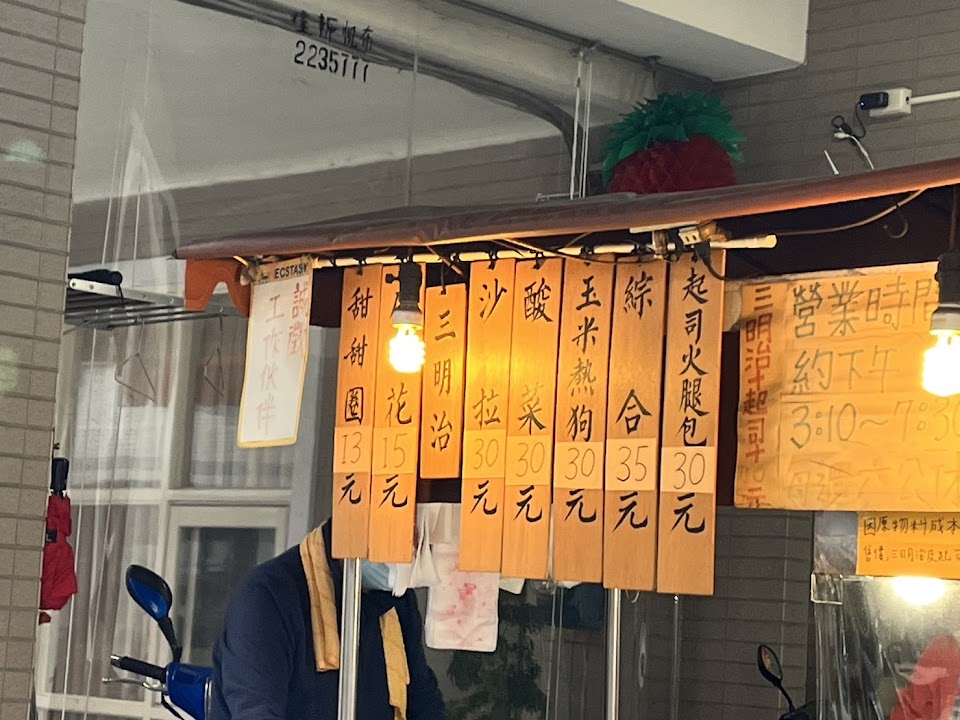 帆布
2235777
ECSTASY
誠徵
工作伙伴
甜甜圈 13元
花 15元
三明治
沙拉 30元
酸菜 30元
玉米熱狗 30元
綜合 35元
起司火腿包 30元
三明治
起司
營業時間
約下午
3:10~7:30
因原物料成本
售價,三明治及起司